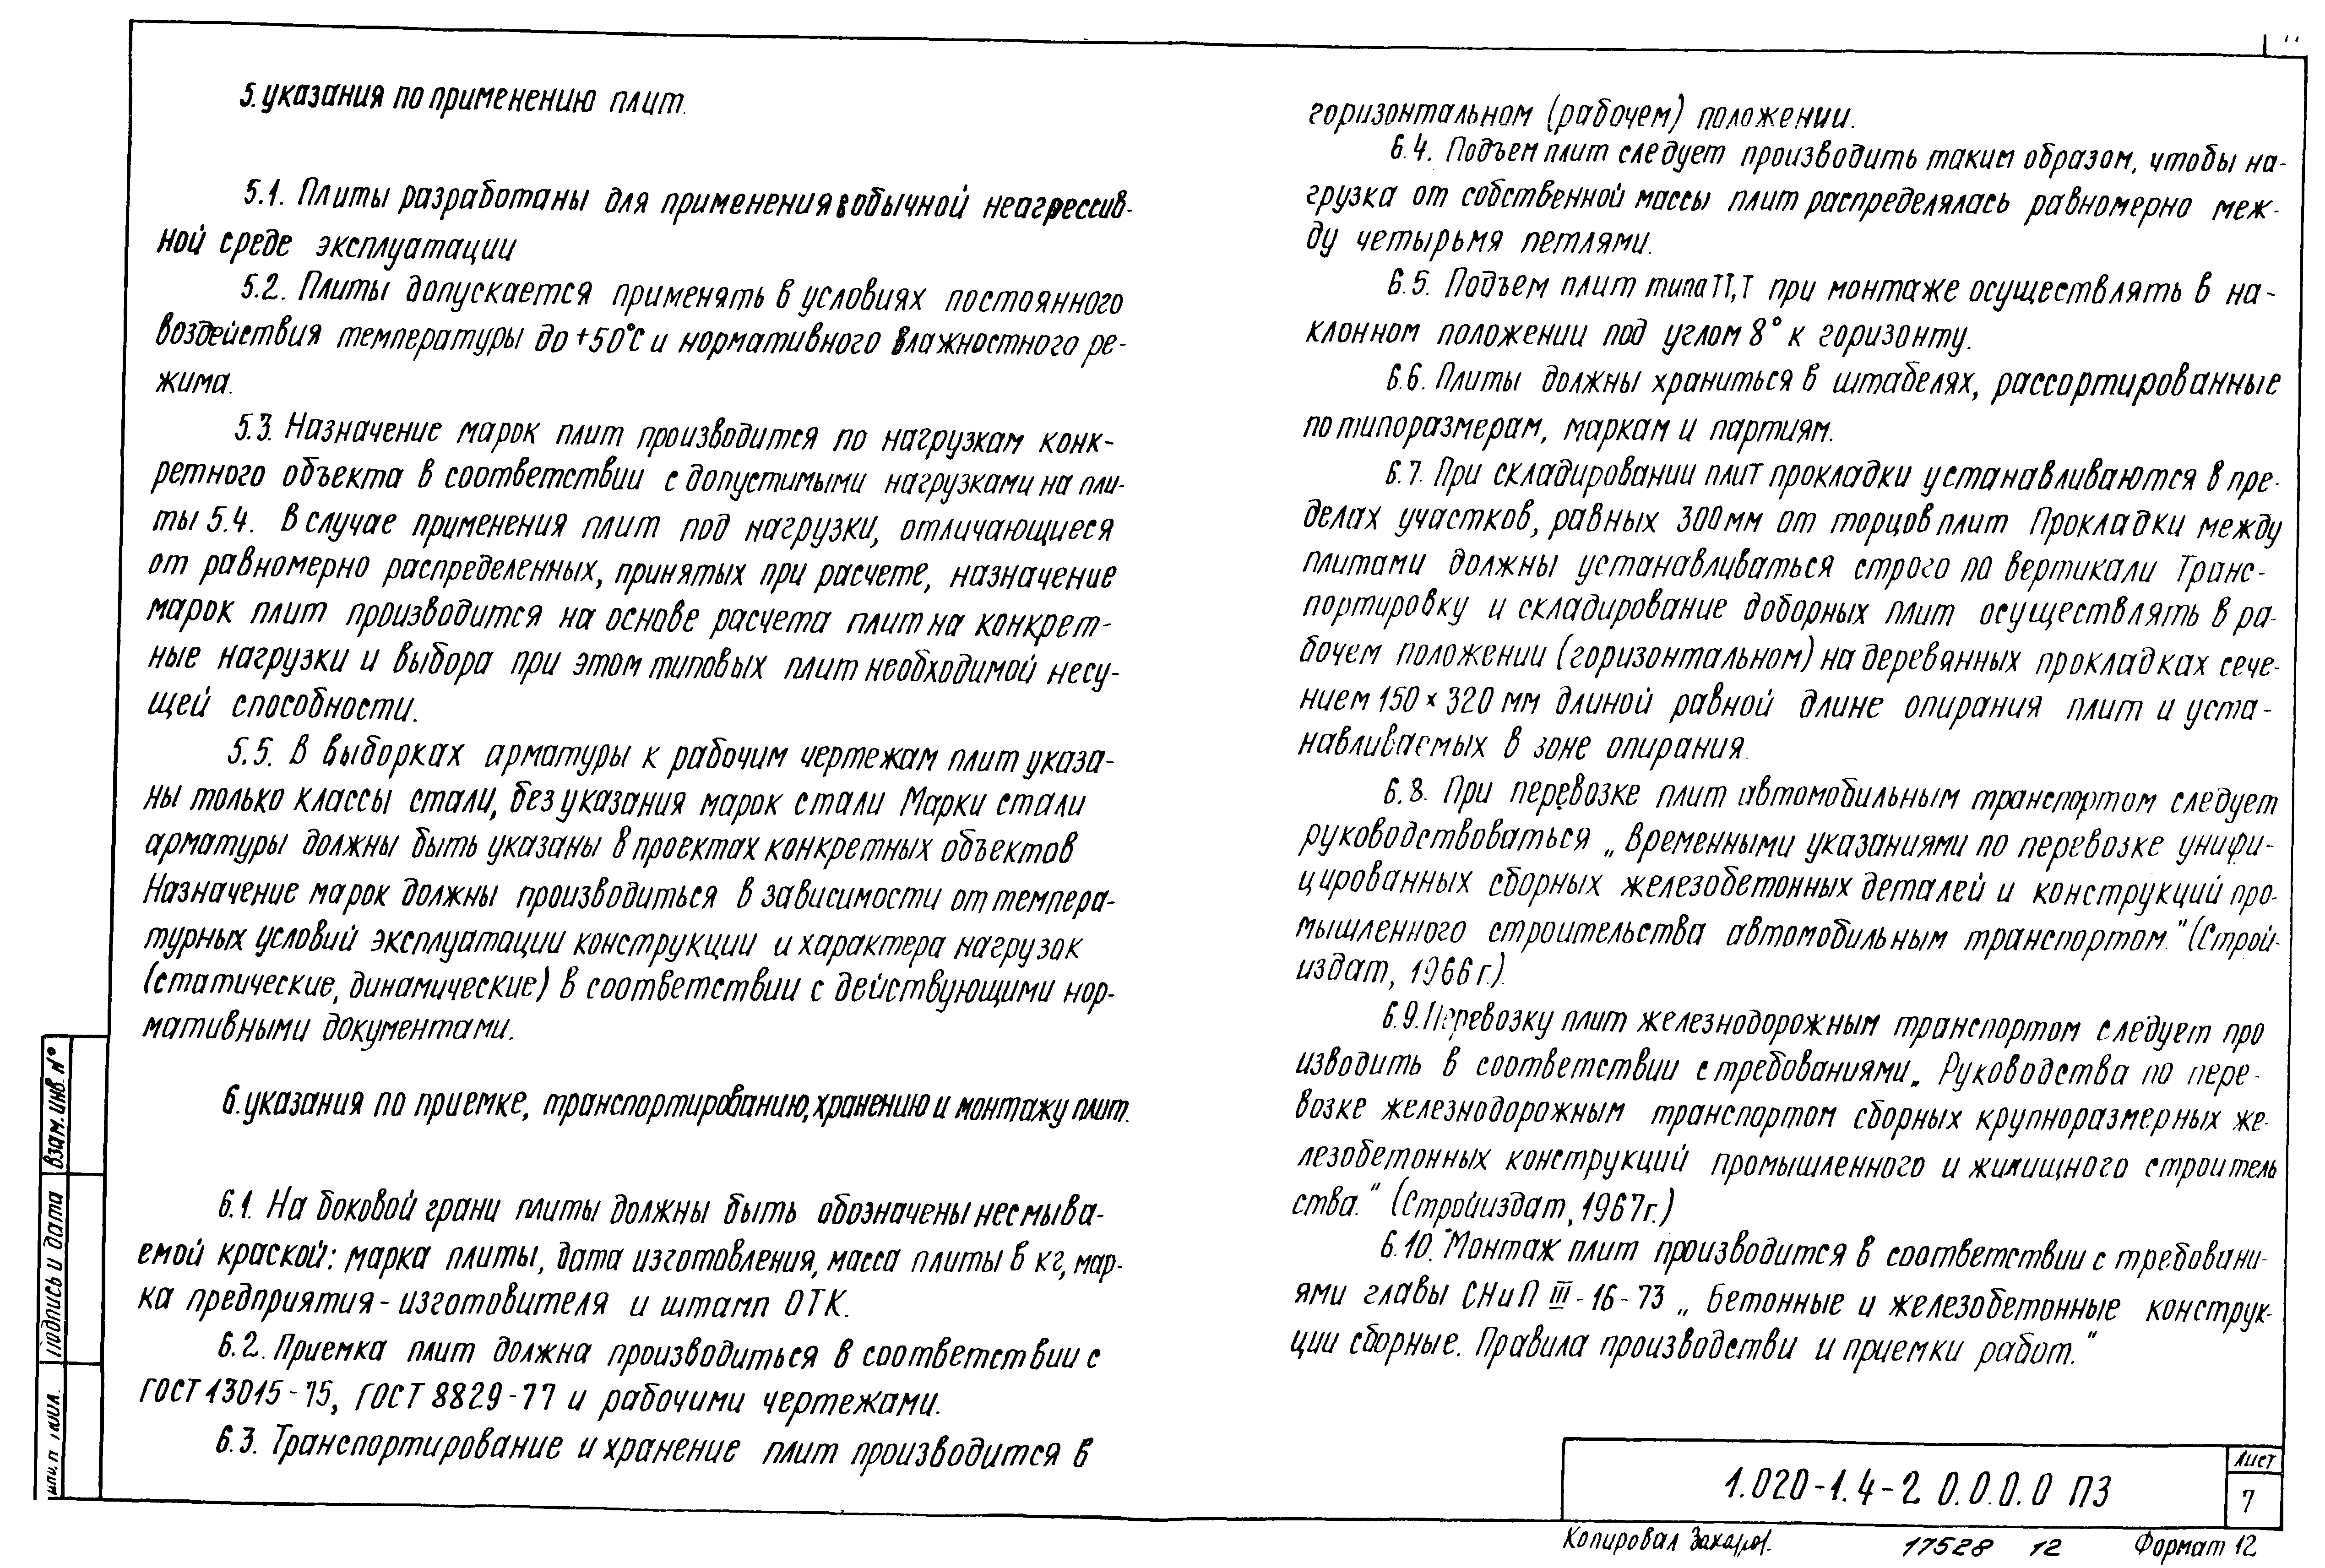 5. указания по применению плит.
5.1. Плиты разработаны для применения в обычной неагрессив-
ной среде эксплуатации
5.2. Плиты допускается применять в условиях постоянного
воздействия температуры до +50°С и нормативного влажностного ре-
жима.
5.3. Назначение марок плит производится по нагрузкам конк-
ретного объекта в соответствии с допустимыми нагрузками на пли-
ты 5.4. В случае применения плит под нагрузки, отличающиеся
от равномерно распределенных, принятых при расчете, назначение
марок плит производится на основе расчета плит на конкрет-
ные нагрузки и выбора при этом типовых плит необходимой несу-
щей способности.
5.5. В выборках арматуры к рабочим чертежам плит указа-
ны только классы стали, без указания марок стали Марки стали
арматуры должны быть указаны в проектах конкретных объектов
Назначение марок должны производиться в зависимости от темпера-
турных условий эксплуатации конструкции и характера нагрузок
(статические, динамические) в соответствии с действующими нор-
мативными документами.
6. указания по приемке, транспортированию, хранению и монтажу плит.
6.1. На боковой грани плиты должны быть обозначены несмыва-
емой краской: марка плиты, дата изготовления, масса плиты в кг, мар-
ка предприятия-изготовителя и штамп ОТК.
6.2. Приемка плит должна производиться в соответствии с
ГОСТ 13015-75, ГОСТ 8829-77 и рабочими чертежами.
6.3. Транспортирование и хранение плит производится в
горизонтальном (рабочем) положении.
6.4. Подъем плит следует производить таким образом, чтобы на-
грузка от собственной массы плит распределялась равномерно меж-
ду четырьмя петлями.
6.5. Подъем плит типа ТТ, Т при монтаже осуществлять в на-
клонном положении под углом 8° к горизонту.
6.6. Плиты должны храниться в штабелях, рассортированные
по типоразмерам, маркам и партиям.
6.7. При складировании плит прокладки устанавливаются в пре-
делах участков, равных 300 мм от торцов плит Прокладки между
плитами должны устанавливаться строго по вертикали Транс-
портировку и складирование доборных плит осуществлять в ра-
бочем положении (горизонтальном) на деревянных прокладках сече-
нием 150 × 320 мм длиной равной длине опирания плит и уста-
навливаемых в зоне опирания.
6.8. При перевозке плит автомобильным транспортом следует
руководствоваться „Временными указаниями по перевозке унифи-
цированных сборных железобетонных деталей и конструкций про-
мышленного строительства автомобильным транспортом." (Строй-
издат, 1966 г.).
6.9. Перевозку плит железнодорожным транспортом следует про
изводить в соответствии с требованиями „Руководства по пере-
возке железнодорожным транспортом сборных крупноразмерных же-
лезобетонных конструкций промышленного и жилищного строитель
ства." (Стройиздат, 1967г.)
6.10. Монтаж плит производится в соответствии с требовани-
ями главы СНиП III-16-73 „Бетонные и железобетонные конструк-
ции сборные. Правила производстви и приемки работ."
Взам. инв. N°
Подпись и дата
1.020-1.4-2 0.0.0.0 ПЗ
Лист
7
Копировал Захаров.
17528 12
Формат 12